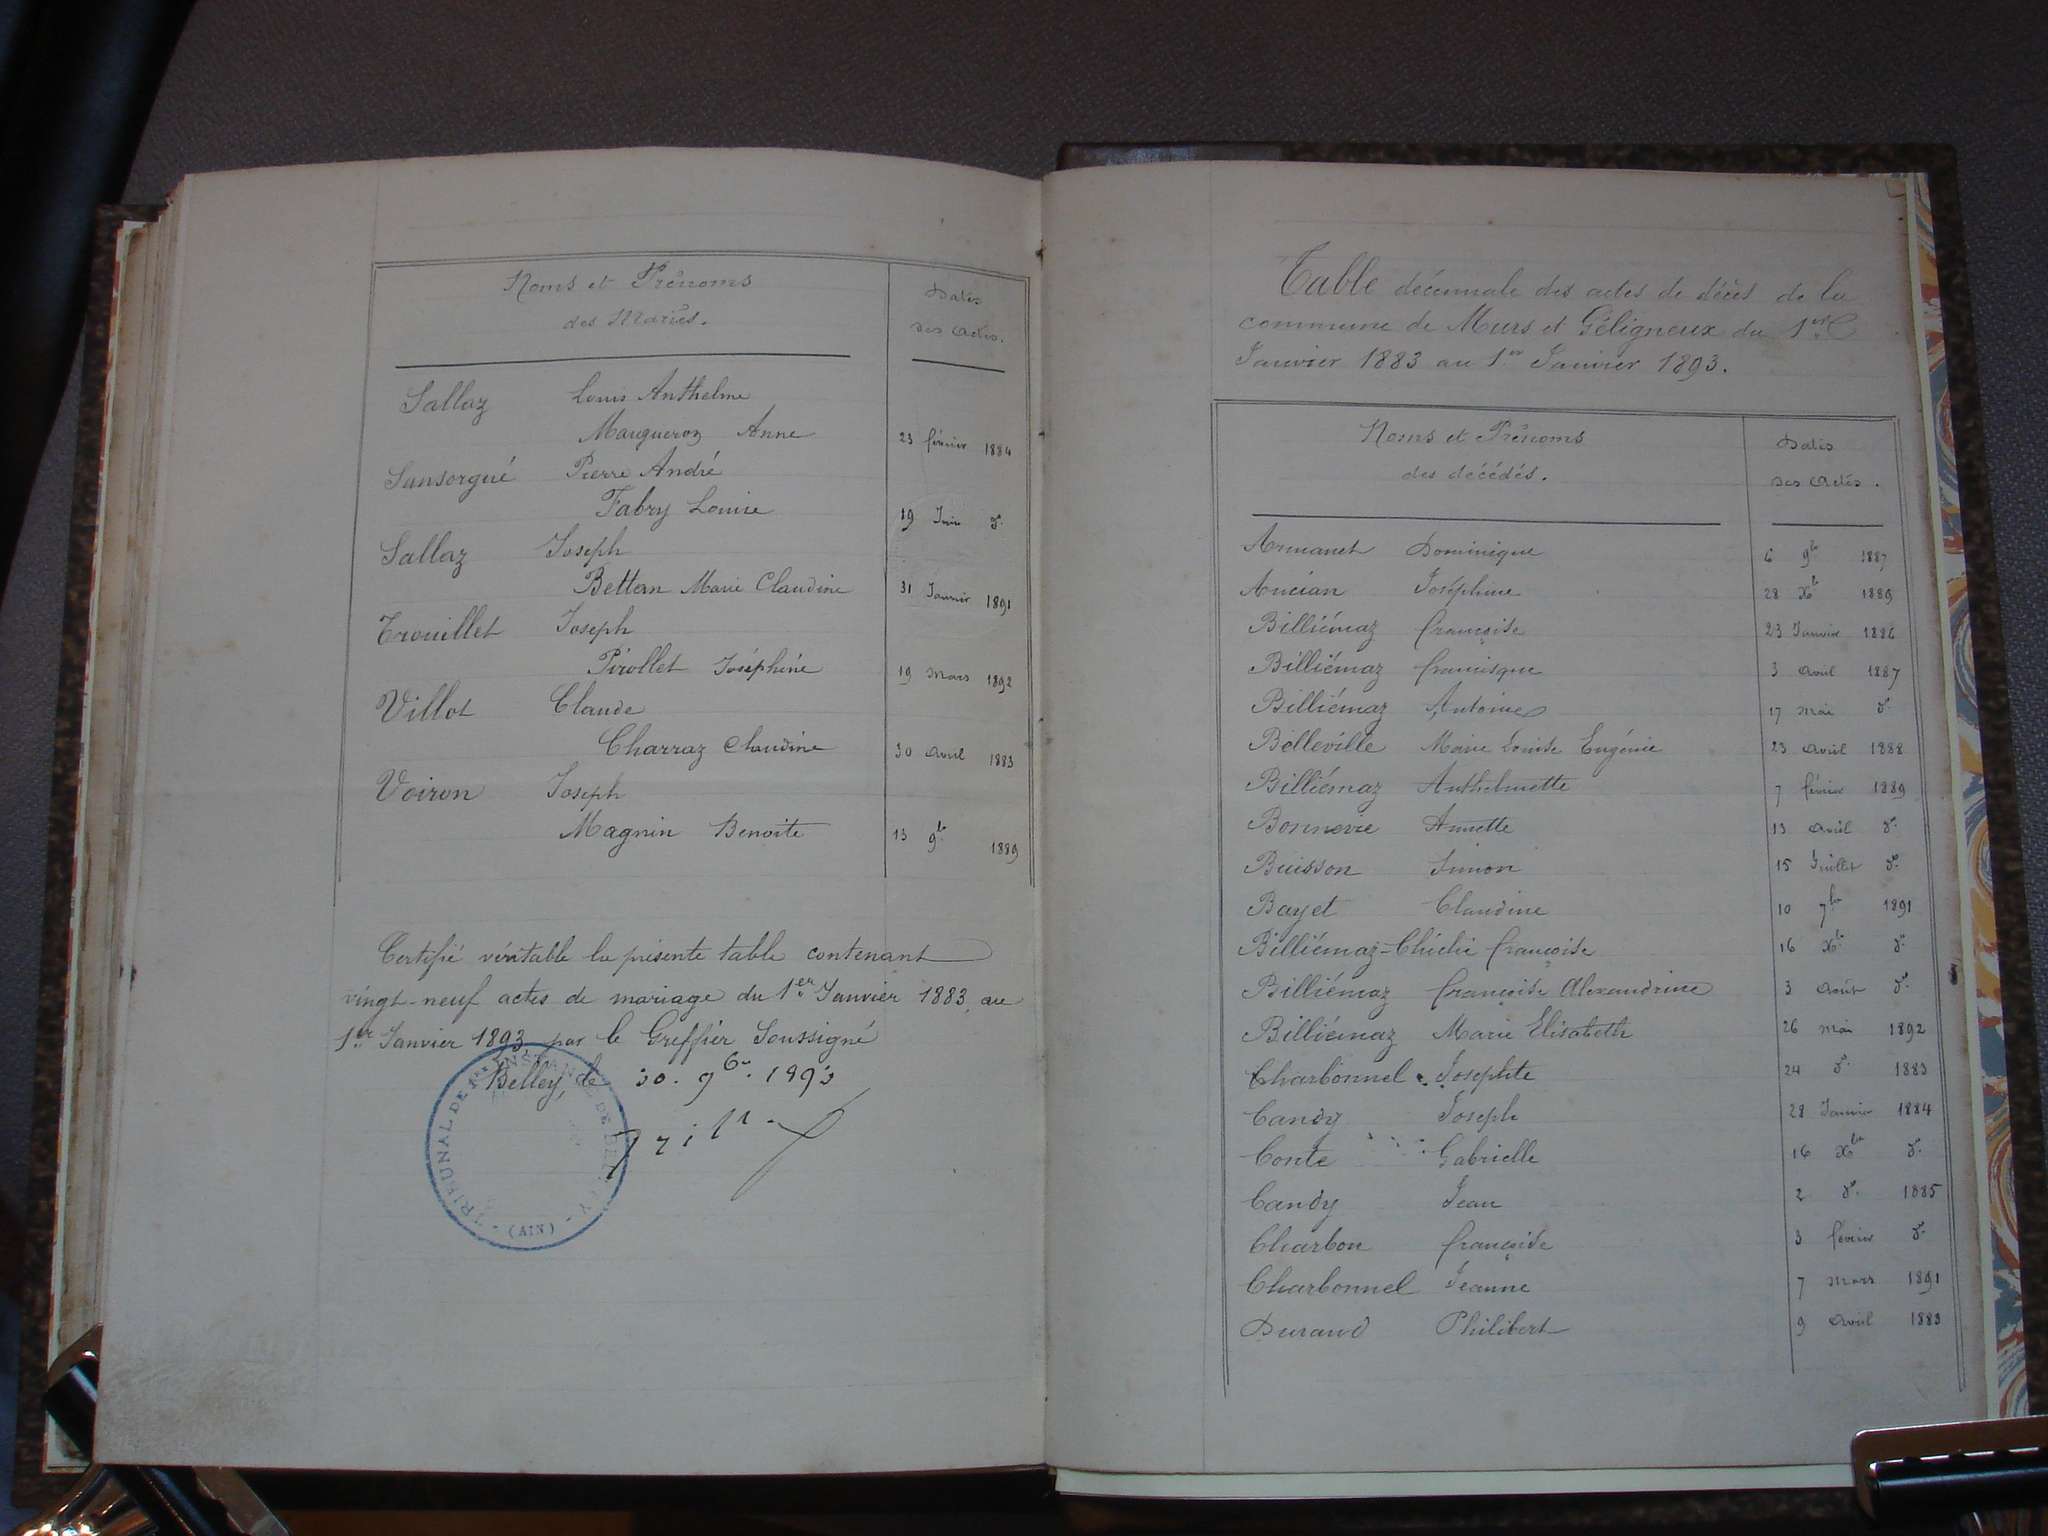 Noms et Prénoms
des Mariés.
Dates
des actes.
Sallaz Louis Anthelme
Maugueroz Anne 23 février 1884
Sansorgué Pierre André
Fabry Louise 19 Juin do
Sallaz Joseph
Bettan Marie Claudine 31 Janvier 1891
Trouillet Joseph
Pirollet Joséphine 19 Mars 1892
Villot Claude
Charraz Claudine 30 avril 1883
Voiron Joseph
Magnin Benoite 13 9bre 1889
Certifié véritable la présente table contenant
vingt-neuf actes de mariage du 1er Janvier 1883 au
1er Janvier 1893 par le Greffier Soussigné
Belley, le 30. 9bre 1893
TRIBUNAL DE 1ERE INSTANCE DE BELLEY
(AIN)
Table décennale des actes de décès de la
commune de Murs et Géligneux du 1er
Janvier 1883 au 1er Janvier 1893.
Noms et Prénoms
des décédés.
Dates
des actes.
Armanet Dominique 6 9bre 1887
Ancian Joséphine 28 Xbre 1889
Billiémaz françoise 23 Janvier 1886
Billiémaz francisque 3 avril 1887
Billiémaz Antoine 17 mai do
Bolleville Marie Louise Eugénie 23 avril 1888
Billiémaz Anthelmette 7 février 1889
Bonnevie Annette 13 avril do
Buisson Simon 15 Juillet do
Bayet Claudine 10 7bre 1891
Billiémaz-Chichi françoise 16 Xbre do
Billiémaz françoise Alexandrine 3 août do
Billiémaz Marie Elisabeth 26 mai 1892
Charbonnel Josephte 24 do 1883
Candy Joseph 28 Janvier 1884
Conte Gabrielle 16 Xbre do
Candy Jean 2 do 1885
Charbon françoise 3 février do
Charbonnel Jeanne 7 mars 1891
Durand Philibert 9 avril 1883